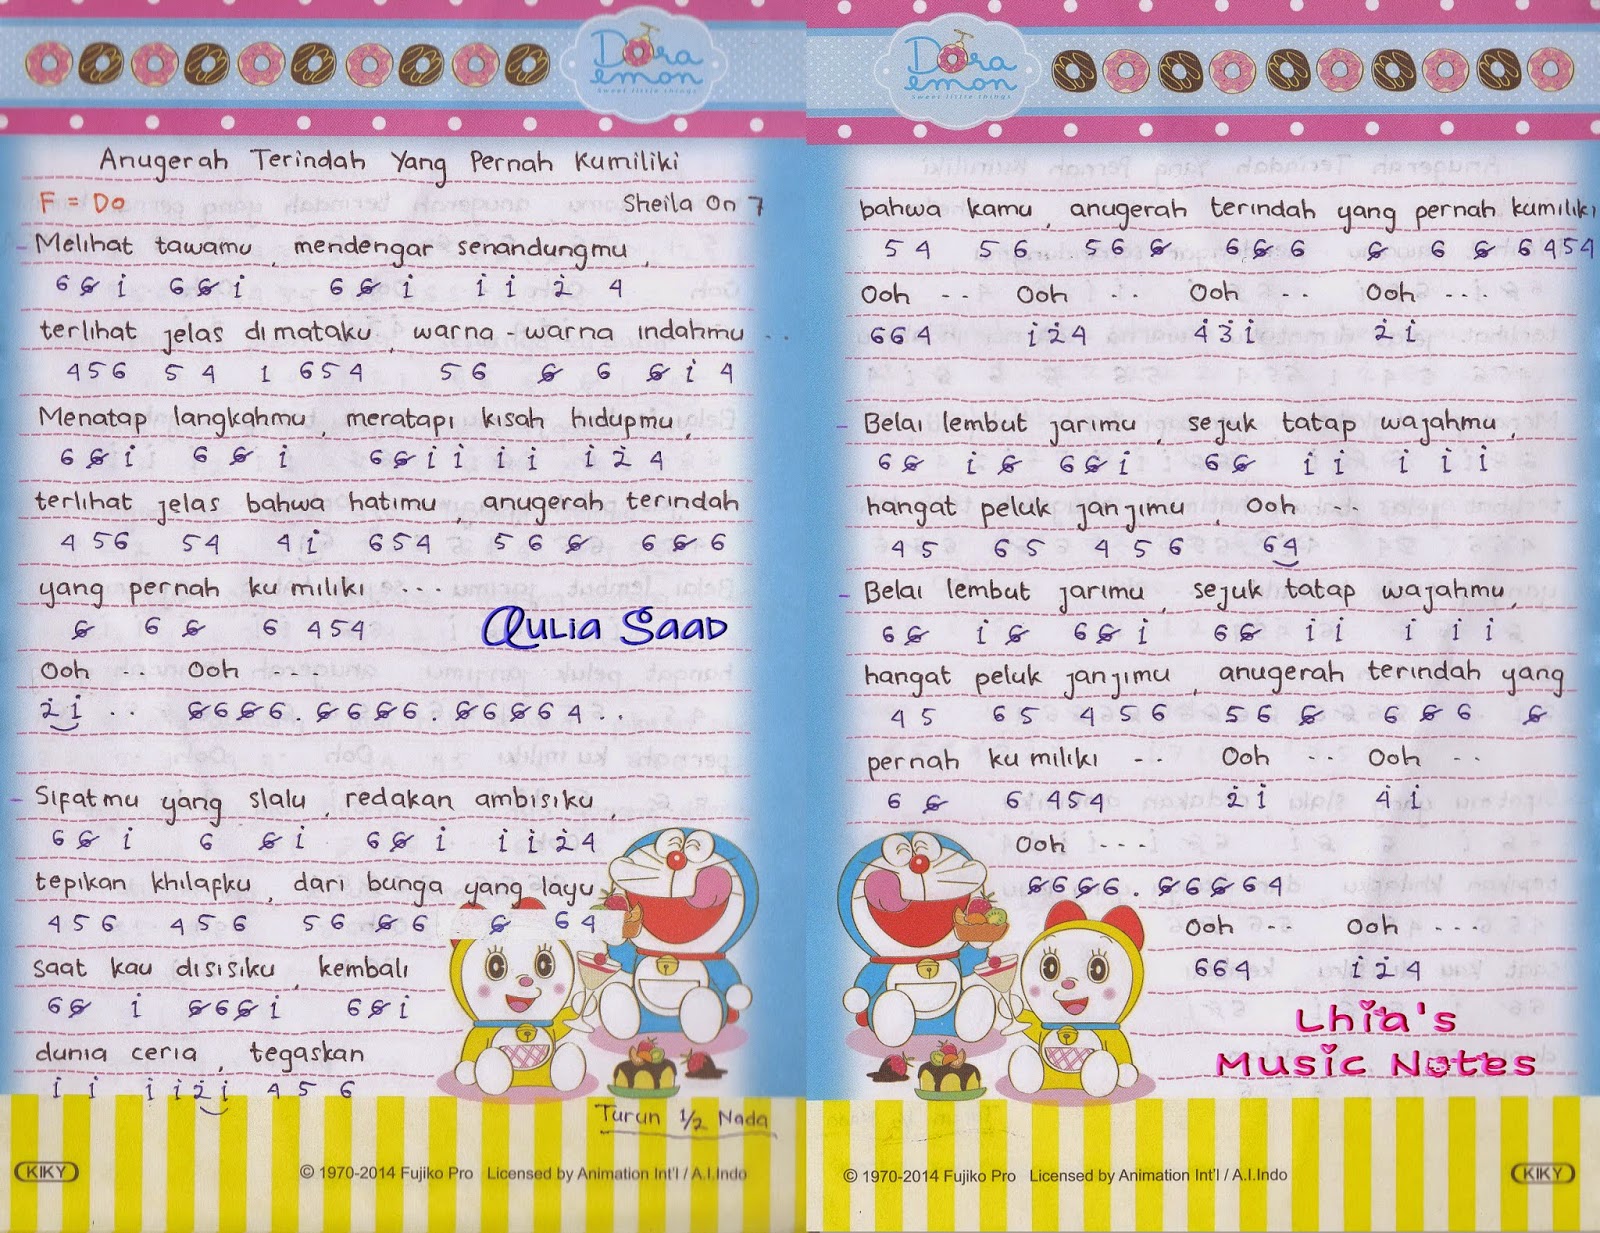 Dora
emon
sweet little things
Anugerah Terindah Yang Pernah Kumiliki
F = Do
Sheila On 7
- Melihat tawamu , mendengar senandungmu ,
6 6̸ i̇ 6 6̸ i̇ 6 6̸ i̇ i̇ i̇ 2̇ 4
terlihat jelas di mataku , warna - warna indahmu ..
4 5 6 5 4 1 6 5 4 5 6 6̸ 6 6̸ i̇ 4
Menatap langkahmu , meratapi kisah hidupmu ,
6 6̸ i̇ 6 6̸ i̇ 6 6̸ i̇ i̇ i̇ i̇ i̇ 2̇ 4
terlihat jelas bahwa hatimu , anugerah terindah
4 5 6 5 4 4 i̇ 6 5 4 5 6 6̸ 6 6̸ 6
yang pernah ku miliki ...
6̸ 6 6̸ 6 4 5 4
Aulia Saad
Ooh .. Ooh ...
2̇ i̇ .. 6̸ 6 6̸ 6 . 6̸ 6 6̸ 6 . 6̸ 6 6̸ 6 4 ..
- Sifatmu yang slalu , redakan ambisiku ,
6 6̸ i̇ 6 6̸ i̇ 6 6̸ i̇ i̇ i̇ 2̇ 4
tepikan khilafku , dari bunga yang layu
4 5 6 4 5 6 5 6 6̸ 6 6̸ 6 4
saat kau disisiku , kembali
6 6̸ i̇ 6̸ 6 6̸ i̇ 6 6̸ i̇
dunia ceria , tegaskan
i̇ i̇ i̇ i̇ 2̇ i̇ 4 5 6
Turun 1/2 Nada
KIKY
© 1970-2014 Fujiko Pro Licensed by Animation Int'l / A.I.Indo
Dora
emon
sweet little things
bahwa kamu , anugerah terindah yang pernah kumiliki
5 4 5 6 5 6 6̸ 6 6̸ 6 6̸ 6 6̸ 6 4 5 4
Ooh .. Ooh .. Ooh .. Ooh ...
6 6 4 i̇ 2̇ 4 4̇ 3̇ i̇ 2̇ i̇
- Belai lembut jarimu , sejuk tatap wajahmu ,
6 6̸ i̇ 6̸ 6 6̸ i̇ 6 6̸ i̇ i̇ i̇ i̇ i̇
hangat peluk janjimu , Ooh ...
4 5 6 5 4 5 6 6 4
- Belai lembut jarimu , sejuk tatap wajahmu ,
6 6̸ i̇ 6̸ 6 6̸ i̇ 6 6̸ i̇ i̇ i̇ i̇ i̇
hangat peluk janjimu , anugerah terindah yang
4 5 6 5 4 5 6 5 6 6̸ 6 6̸ 6 6̸
pernah ku miliki .. Ooh .. Ooh ..
6 6̸ 6 4 5 4 2̇ i̇ 4̇ i̇
Ooh ...
6̸ 6 6̸ 6 . 6̸ 6 6̸ 6 4
Ooh .. Ooh ...
6 6 4 i̇ 2̇ 4
Lhia's
Music Notes
© 1970-2014 Fujiko Pro Licensed by Animation Int'l / A.I.Indo
KIKY